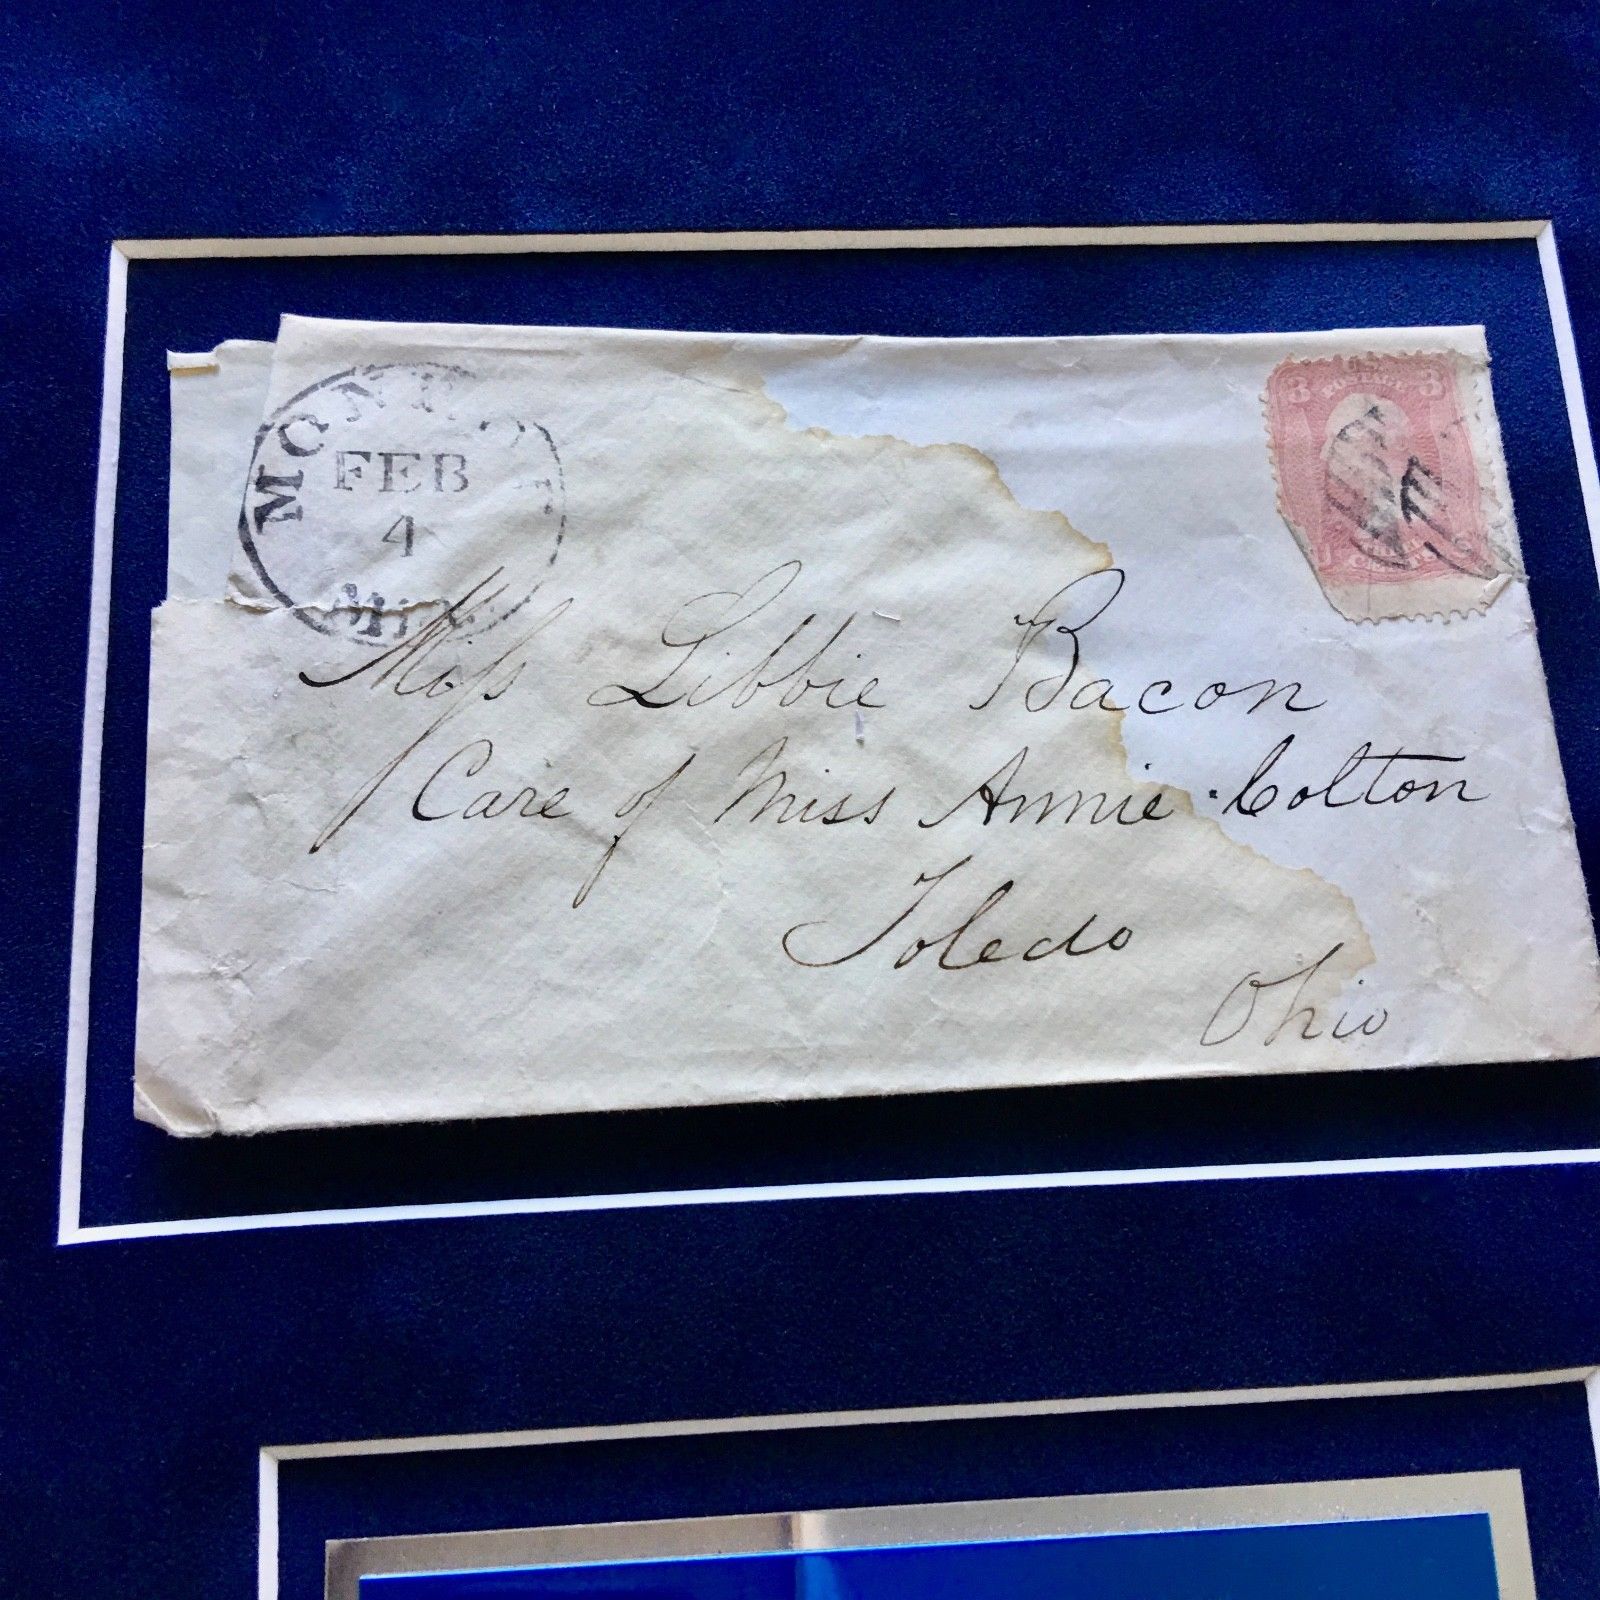 MONROE
FEB
4
MICH
3 POSTAGE 3
Miss Libbie Bacon
Care of Miss Annie Colton
Toledo
Ohio